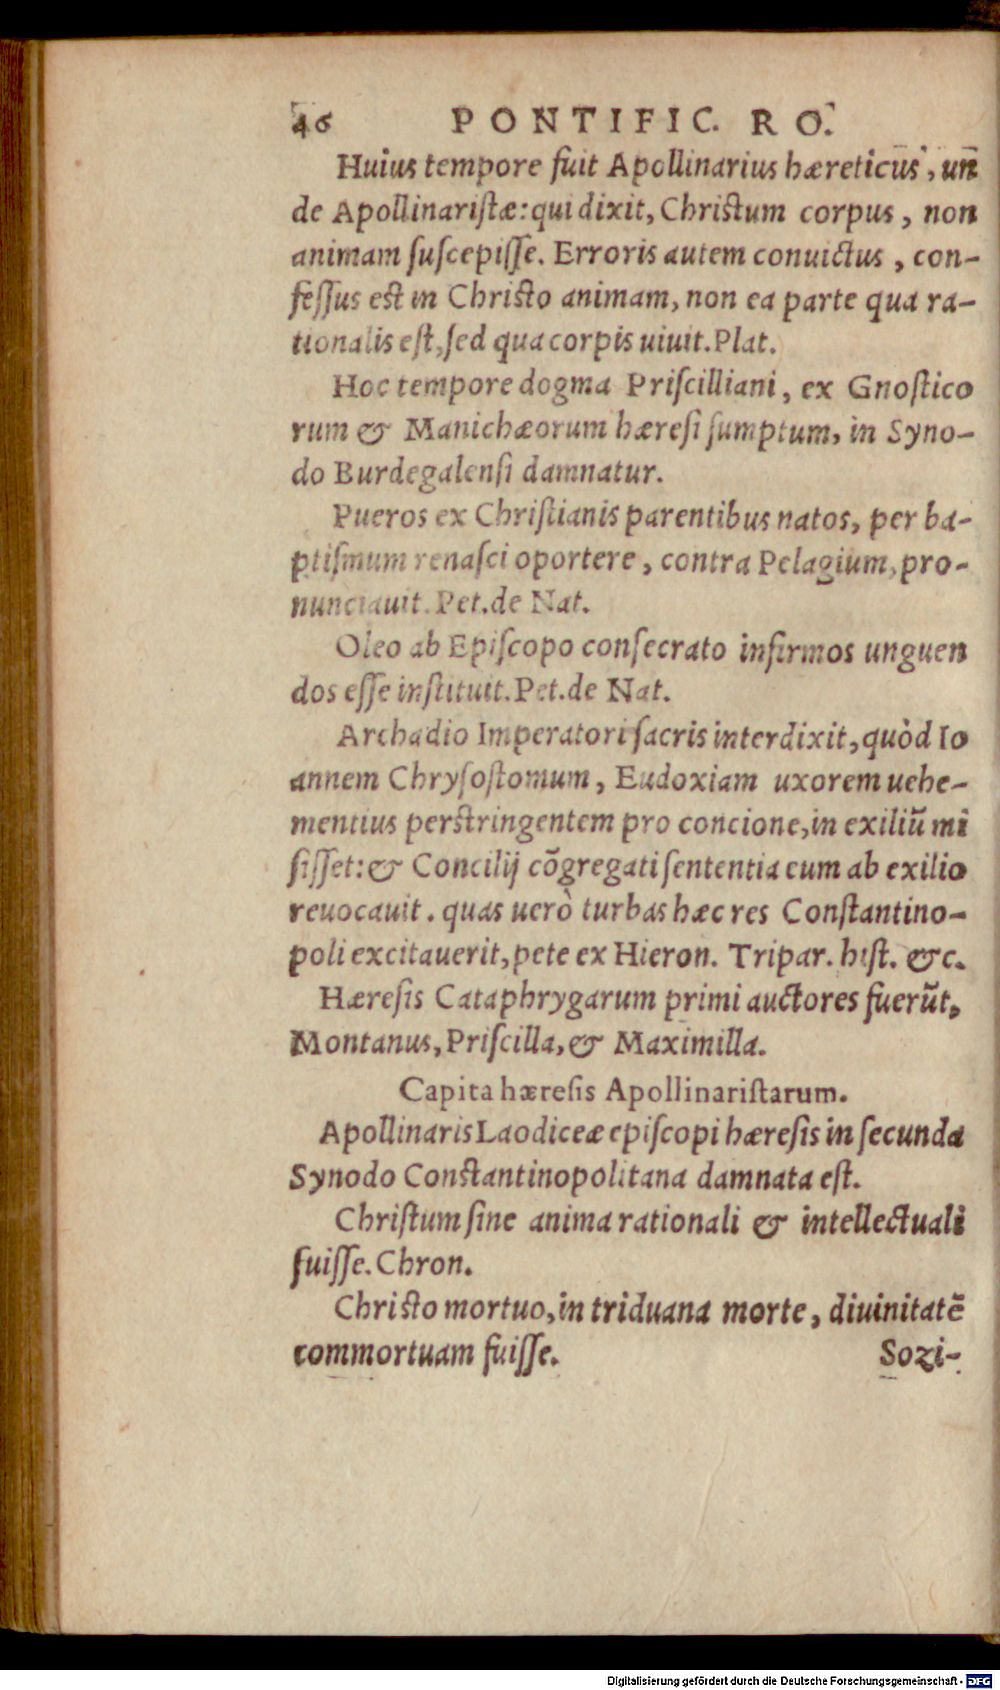 46 PONTIFIC. RO.
Huius tempore fuit Apollinarius hæreticus, un
de Apollinariſtæ: qui dixit, Chriſtum corpus, non
animam ſuſcepiſſe. Erroris autem conuictus, con-
feſſus eſt in Chriſto animam, non ea parte qua ra-
tionalis eſt, ſed qua corpis uiuit. Plat.
Hoc tempore dogma Priſcilliani, ex Gnoſtico
rum & Manichæorum hæreſi ſumptum, in Syno-
do Burdegalenſi damnatur.
Pueros ex Chriſtianis parentibus natos, per ba-
ptiſmum renaſci oportere, contra Pelagium, pro-
nunciauit. Pet. de Nat.
Oleo ab Epiſcopo conſecrato infirmos unguen
dos eſſe inſtituit. Pet. de Nat.
Archadio Imperatori ſacris interdixit, quòd Io
annem Chryſoſtomum, Eudoxiam uxorem uehe-
mentius perſtringentem pro concione, in exiliū mi
ſiſſet: & Concilij cōgregati ſententia eum ab exilio
reuocauit. quas uerò turbas hæc res Conſtantino-
poli excitauerit, pete ex Hieron. Tripar. hiſt. &c.
Hæreſis Cataphrygarum primi auctores fuerūt,
Montanus, Priſcilla, & Maximilla.
Capita hæresis Apollinariſtarum.
Apollinaris Laodiceæ epiſcopi hæreſis in ſecunda
Synodo Conſtantinopolitana damnata eſt.
Chriſtum ſine anima rationali & intellectuali
fuiſſe. Chron.
Chriſto mortuo, in triduana morte, diuinitatē
commortuam fuiſſe. Sozi-
Digitalisierung gefördert durch die Deutsche Forschungsgemeinschaft - DFG